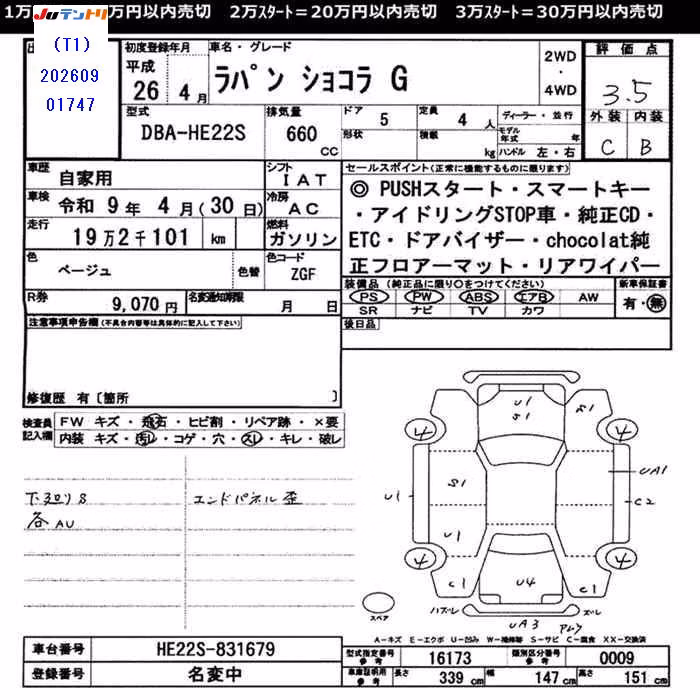 1万 万円以内売切 2万スタート=20万円以内売切 3万スタート=30万円以内売切
JUテントリ
(T1)
202609
01747
初度登録年月
平成
26 4月
車名・グレード
ラパン ショコラ G
2WD
・
4WD
評価点
3.5
外装 内装
C B
型式
DBA-HE22S
排気量
660
cc
ドア 5
形状
定員 4人
積載 kg
ディーラー・並行
モデル年式 年
ハンドル 左・右
車歴 自家用
シフト IAT
車検 令和 9年 4月(30日)
冷房 AC
走行 19万2千101 km
燃料 ガソリン
色 ベージュ 色替
色コード ZGF
R券 9,070円
名変通知期限 月 日
セールスポイント(正常に機能するものに限ります)
◎ PUSHスタート・スマートキー
・アイドリングSTOP車・純正CD・
ETC・ドアバイザー・chocolat純
正フロアーマット・リアワイパー
装備品 (純正品に限り○をつけてください)
PS PW ABS エアB AW
SR ナビ TV カワ
新車保証書
有・無
後日品
注意事項申告欄(不具合内容等は具体的に記入して下さい)
修復歴 有〔箇所 〕
検査員
記入欄
FW キズ・飛石・ヒビ割・リペア跡・×要
内装 キズ・汚レ・コゲ・穴・スレ・キレ・破レ
下廻りS
各AU
エンドパネル歪
U1
S1
S1
4
4
S1
UA1
U1
C2
U1
4
4
C1
U4
C1
スペア
ハズレ
ズレ
UA3
A-キズ E-エクボ U-凹み W-補修等 S-サビ C-腐食 XX-交換済
車台番号 HE22S-831679
登録番号 名変中
型式指定番号
参考
16173
類別区分番号
参考
0009
車庫証明用
参考
長さ 339 cm
幅 147 cm
高さ 151 cm